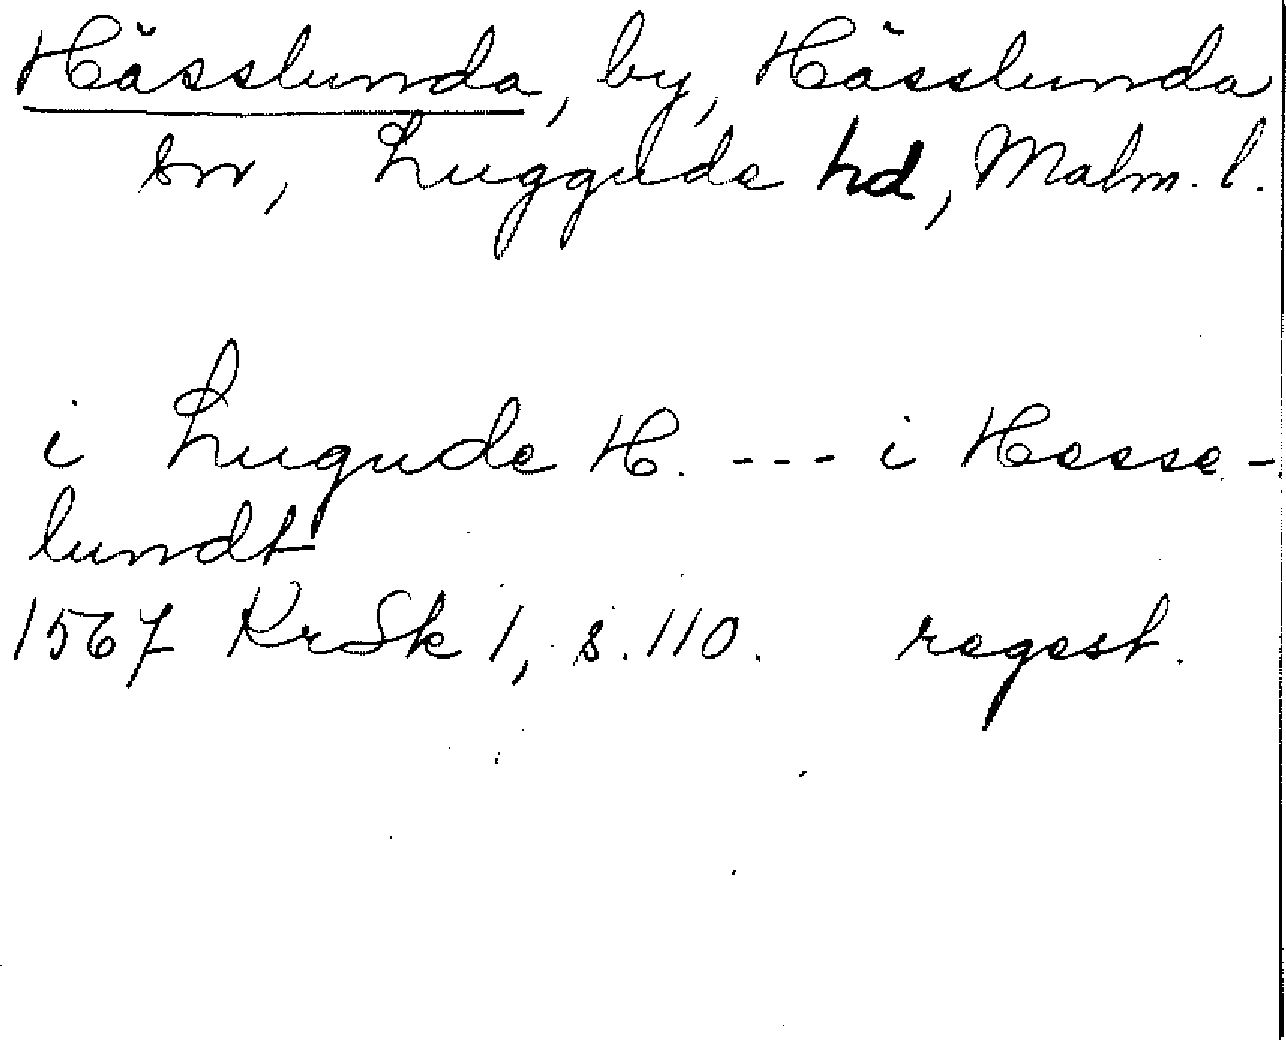 Hässlunda, by, Hässlunda
sn, Luggude hd, Malm. l.
i Lugude H. --- i Hesse-
lundt
1567 KrSk 1, s. 110. regest.